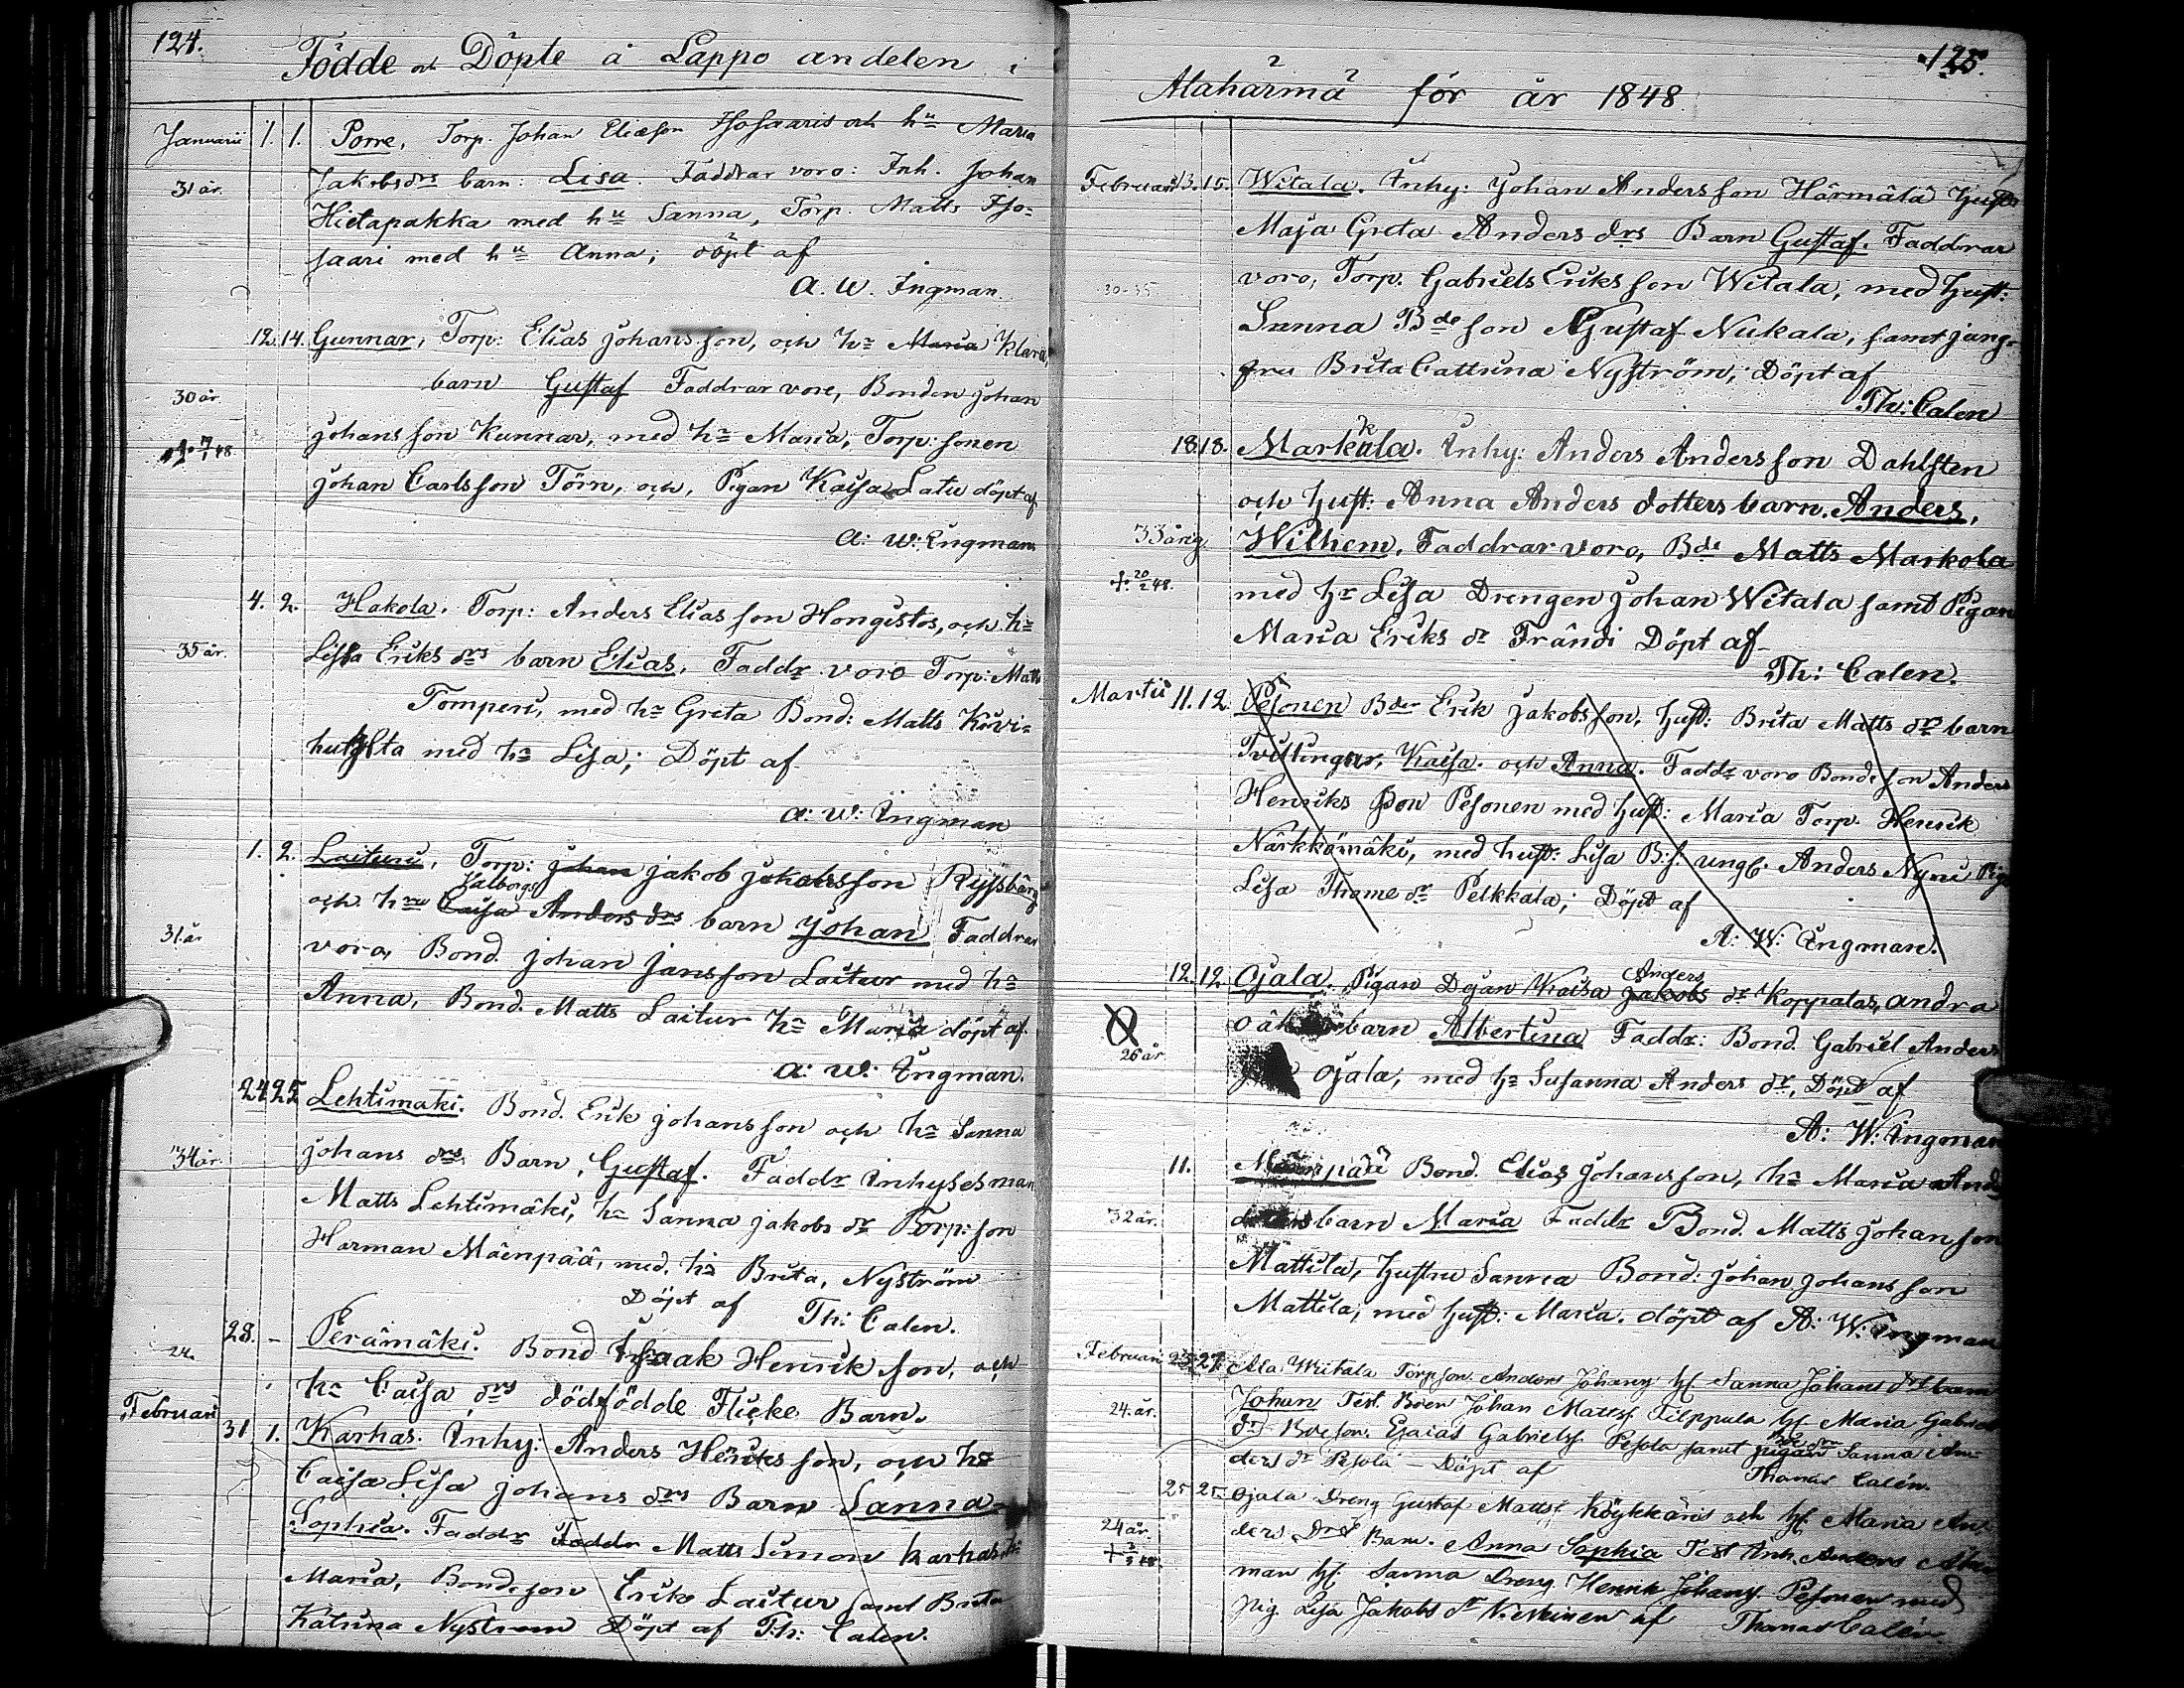 124.
Födde och Döpte å Lappo andelen i
Januarii 1. 1. Porre, Torp. Johan Eliæson Isosaaris och hu Maria
31 år. Jakobsdrs barn: Lisa. Faddrar voro: Inh. Johan
Hietapakka med hu Sanna, Torp. Matts Iso-
saari med hu Anna; döpt af
A. W. Ingman.
12. 14. Gunnar, Torp: Elias Johansson, och hu Maria Klara
30 år. barn Gustaf Faddrar voro, Bonden Johan
Johansson Kunnar, med hu Maria, Torp: sonen
Johan Carlsson Törn, och, Pigan Kaisa Latu döpt af
A: W: Ingman
4. 2. Hakola. Torp: Anders Eliasson Hongistos, och hu
35 år. Lissa Eriks drs barn Elias, Faddr voro Torp: Matts
Tomperi, med hu Greta Bond: Matts Kivi-
huhta med hu Lisa; Döpt af
A: W: Ingman
1. 2. Laituri, Torp: Johan Jakob Jakobsson Ryssbärg
Valborgs
31 år och hu Caisa Anders drs barn Johan Faddrar
voro, Bond. Johan Jansson Laitur med hu
Anna, Bond. Matts Laitur hu Maria döpt af
A: W: Ingman.
24 25 Lehtimäki. Bond. Erik Johansson och hu Sanna
34 år. Johans drs Barn, Gustaf. Faddr Inhysesman
Matts Lehtimäki, hu Sanna Jakobs dr Torp: son
Harman Mäenpää, med. hu Brita, Nyström
Döpt af Th: Calen.
28. - Perämäki. Bond Isaak Henriksson, och
24. hu Caisa drs dödfödde Flicke Barn.
Februari 31 1. Karhas. Inhy: Anders Henriksson, och hu
Caisa Lisa Johans drs Barn Sanna
Sophia. Faddr Faddr Matts Simon Karhas, hu
Maria, Bondeson Erik Laitur samt Brita
Katrina Nyström Döpt af Th: Calen.
125.
Alahärmä för år 1848
Februari 13. 15. Witala. Inhy: Johan Andersson Härmälä Hust:
Maja Greta Anders drs Barn Gustaf. Faddrar
30-35 voro, Torp. Gabriels Eriksson Witala, med Hust:
Sanna Bde son Gustaf Nukala, samt jung-
fru Brita Cattrina Nyström, Döpt af
Th: Calen
18. 18. Markkula. Inhy: Anders Andersson Dahlsten
och Hust: Anna Anders dotters barn. Anders,
33 årig. Wilhem, Faddrar voro, Bde Matts Markola
+ 20/2 48. med hu Lisa Drengen Johan Witala samt Pigan
Maria Eriks dr Frändi Döpt af
Th: Calen.
Martii 11. 12. Pesonen Bde Erik Jakobsson, Hust: Brita Matts dr barn
Tvillingar, Kaisa. och Anna. Faddr voro Bondeson Anders
Henriks son Pesonen med Hust: Maria Torp. Henrik
Närkkömäki, med hust: Lisa B:s. ungk. Anders Nyni Pig
Lisa Thome dr Pelkkala; Döpt af
A: W: Ingman.
12. 12. Ojala. Pigan Dejan Kaisa Jakobs dr Koppalas, andra
Anders
26 år barn Albertina Faddr: Bond. Gabriel Anders
Ojala, med hu Susanna Anders dr, Döpt af
A: W: Ingman
11. Mäenpää Bond. Elias Johansson, hu Maria And
32 år. barn Maria Faddr Bond. Matts Johansson
Mattila, Hustru Sanna Bond: Johan Johansson
Mattila, med Hust: Maria. döpt af A: W: Ingman
Februari 25 27. Ala Wiitala Torpson Anders Johanss. Hf. Sanna Johans drs barn
24. år. Johan Test Bden Johan Mattss. Filppula hf. Maria Gabriels
dr Bdeson. Esaias Gabrielss. Pesola samt pigan Sanna An-
ders dr Pesola - Döpt af Thomas Calén.
25 25. Ojala Dreng Gustaf Mattss. Köykkäris och hf. Maria An-
24 år. ders Drs Barn. Anna Sophia Test Inh. Anders
man hf. Sanna Dreng Henrik Johanss. Pesonen med
pig. Lisa Jakobs dr af Thomas Calén